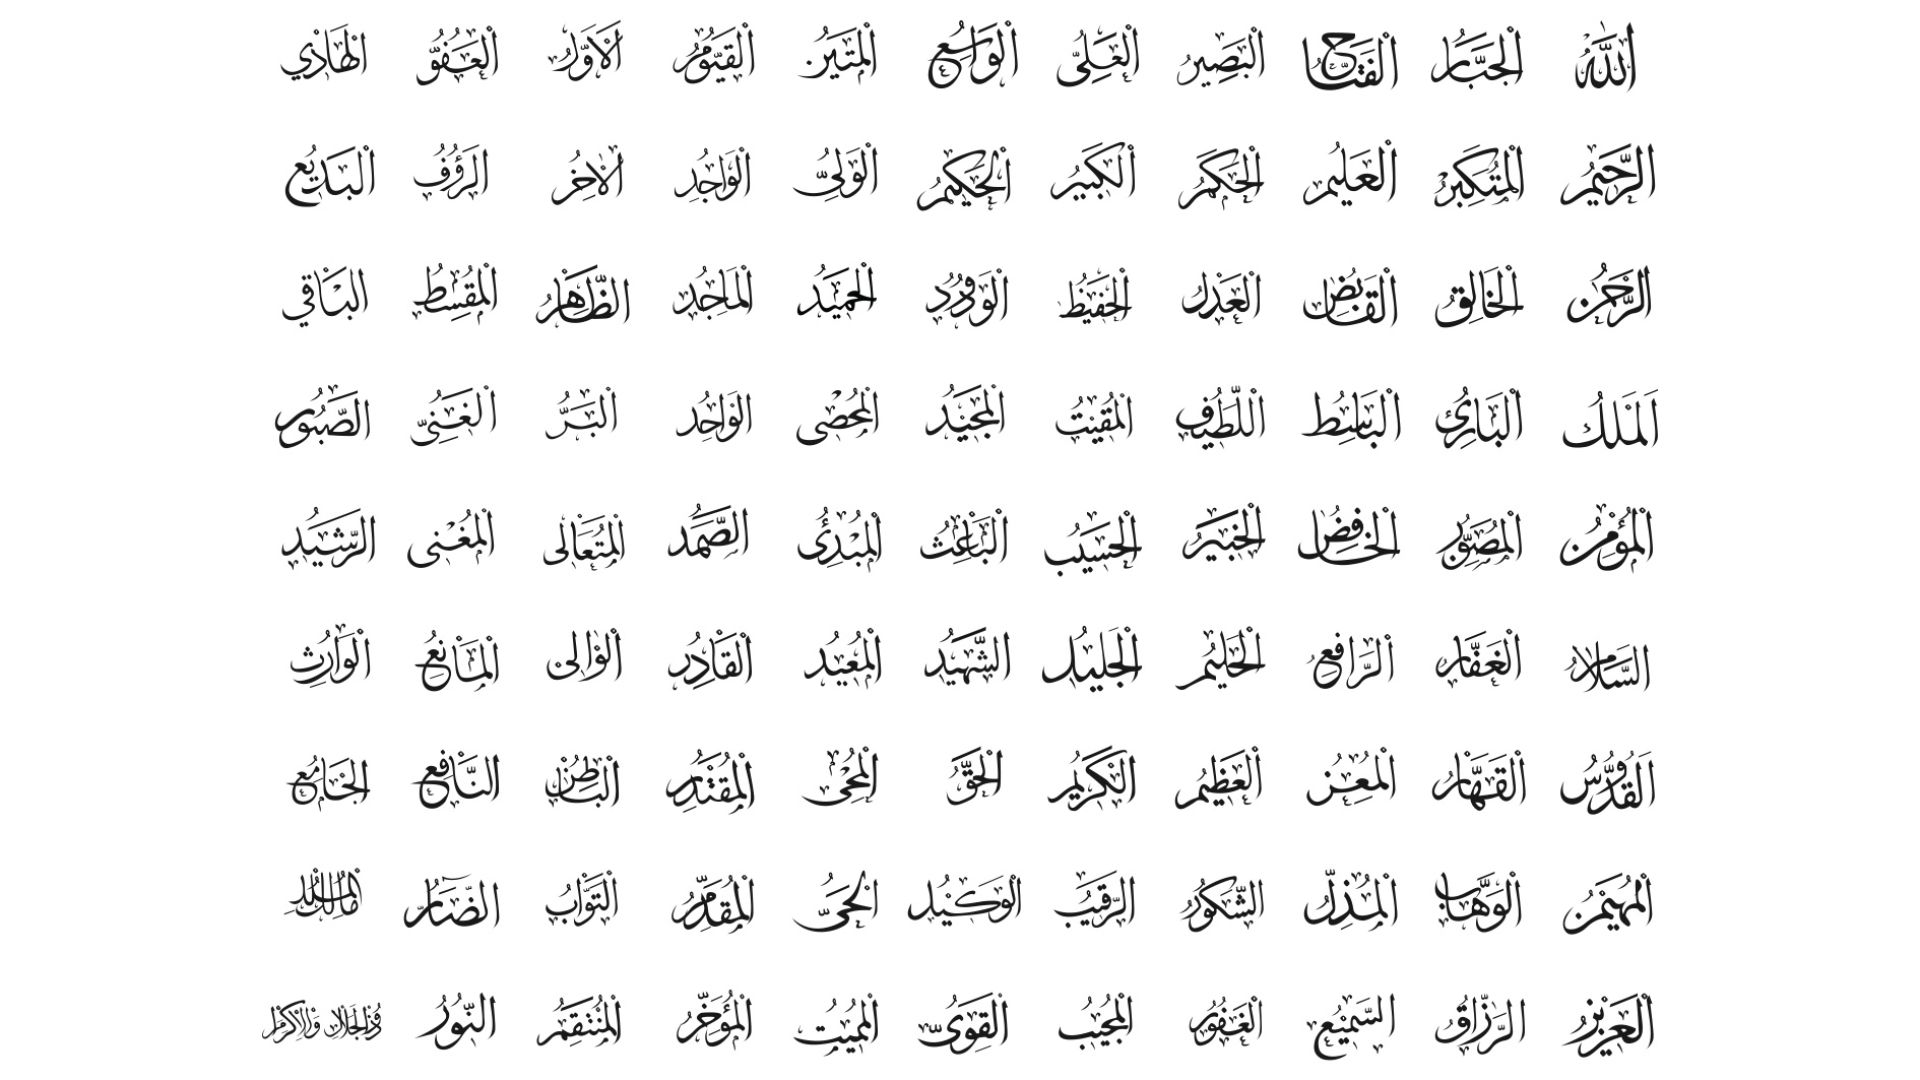 اللّٰهُ الْجَبَّارُ الْفَتَّاحُ الْبَصِيرُ الْعَلِيُّ الْوَاسِعُ الْمَتِينُ الْقَيُّومُ الْأَوَّلُ الْعَفُوُّ الْهَادِي
الرَّحِيمُ الْمُتَكَبِّرُ الْعَلِيمُ الْحَكَمُ الْكَبِيرُ الْحَكِيمُ الْوَلِيُّ الْوَاجِدُ الْآخِرُ الرَّؤُفُ الْبَدِيعُ
الرَّحْمٰنُ الْخَالِقُ الْقَابِضُ الْعَدْلُ الْحَفِيظُ الْوَدُودُ الْحَمِيدُ الْمَاجِدُ الظَّاهِرُ الْمُقْسِطُ الْبَاقِي
الْمَلِكُ الْبَارِئُ الْبَاسِطُ اللَّطِيفُ الْمُقِيتُ الْمَجِيدُ الْمُحْصِي الْوَاحِدُ الْبَرُّ الْغَنِيُّ الصَّبُورُ
الْمُؤْمِنُ الْمُصَوِّرُ الْخَافِضُ الْخَبِيرُ الْحَسِيبُ الْبَاعِثُ الْمُبْدِئُ الصَّمَدُ الْمُتَعَالِي الْمُغْنِي الرَّشِيدُ
السَّلَامُ الْغَفَّارُ الرَّافِعُ الْحَلِيمُ الْجَلِيلُ الشَّهِيدُ الْمُعِيدُ الْقَادِرُ الْوَالِي الْمَانِعُ الْوَارِثُ
الْقُدُّوسُ الْقَهَّارُ الْمُعِزُّ الْعَظِيمُ الْكَرِيمُ الْحَقُّ الْمُحْيِي الْمُقْتَدِرُ الْبَاطِنُ النَّافِعُ الْجَامِعُ
الْمُهَيْمِنُ الْوَهَّابُ الْمُذِلُّ الشَّكُورُ الرَّقِيبُ الْوَكِيلُ الْحَيُّ الْمُقَدِّمُ التَّوَّابُ الضَّارُّ مَالِكُ الْمُلْكِ
الْعَزِيزُ الرَّزَّاقُ السَّمِيعُ الْغَفُورُ الْمُجِيبُ الْقَوِيُّ الْمُمِيتُ الْمُؤَخِّرُ الْمُنْتَقِمُ النُّورُ ذُو الْجَلَالِ وَالْإِكْرَامِ